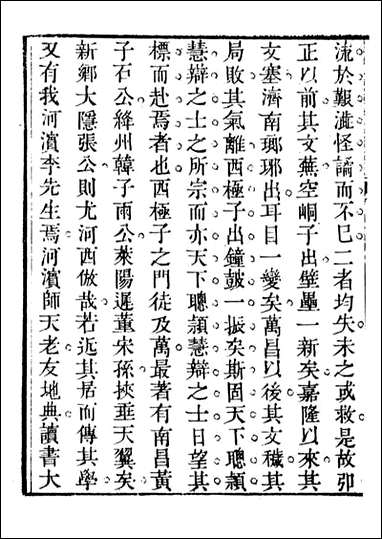 流於艱澁怪譎而不巳二者均失未之或救是故弭
正以前其文蕪空峒子出壁壘一新矣嘉隆以來其
文塞濟南瑯琊出耳目一變矣萬昌以後其文穢其
局敗其氣離西極子出鐘鼓一振矣斯固天下聰頴
慧辯之士之所宗而亦天下聰頴慧辯之士日望其
標而赴焉者也西極子之門徒及萬最著有南昌黃
子石公絳州韓子雨公萊陽遲董宋孫挾垂天翼矣
新鄉大隱張公則尤河西倣哉若近其居而傳其學
又有我河濱李先生焉河濱師天老友地典讀書大